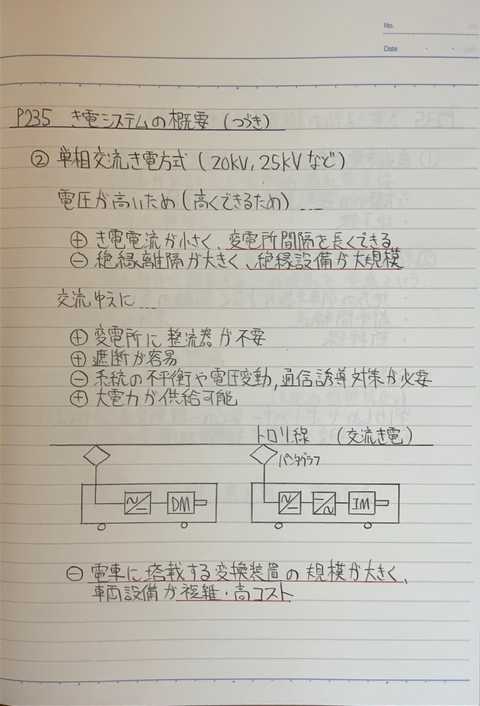 No.
Date
P235 き電システムの概要 (つづき)
② 単相交流き電方式 (20kV, 25kVなど)
電圧が高いため (高くできるため) …
⊕ き電電流が小さく、変電所間隔を長くできる
⊖ 絶縁離隔が大きく、絶縁設備が大規模
交流ゆえに …
⊕ 変電所に整流器が不要
⊕ 遮断が容易
⊖ 系統の不平衡や電圧変動, 通信誘導対策が必要
⊕ 大電力が供給可能
トロリ線 (交流き電)
パンタグラフ
DM
IM
⊖ 電車に搭載する変換装置の規模が大きく、
車両設備が複雑・高コスト